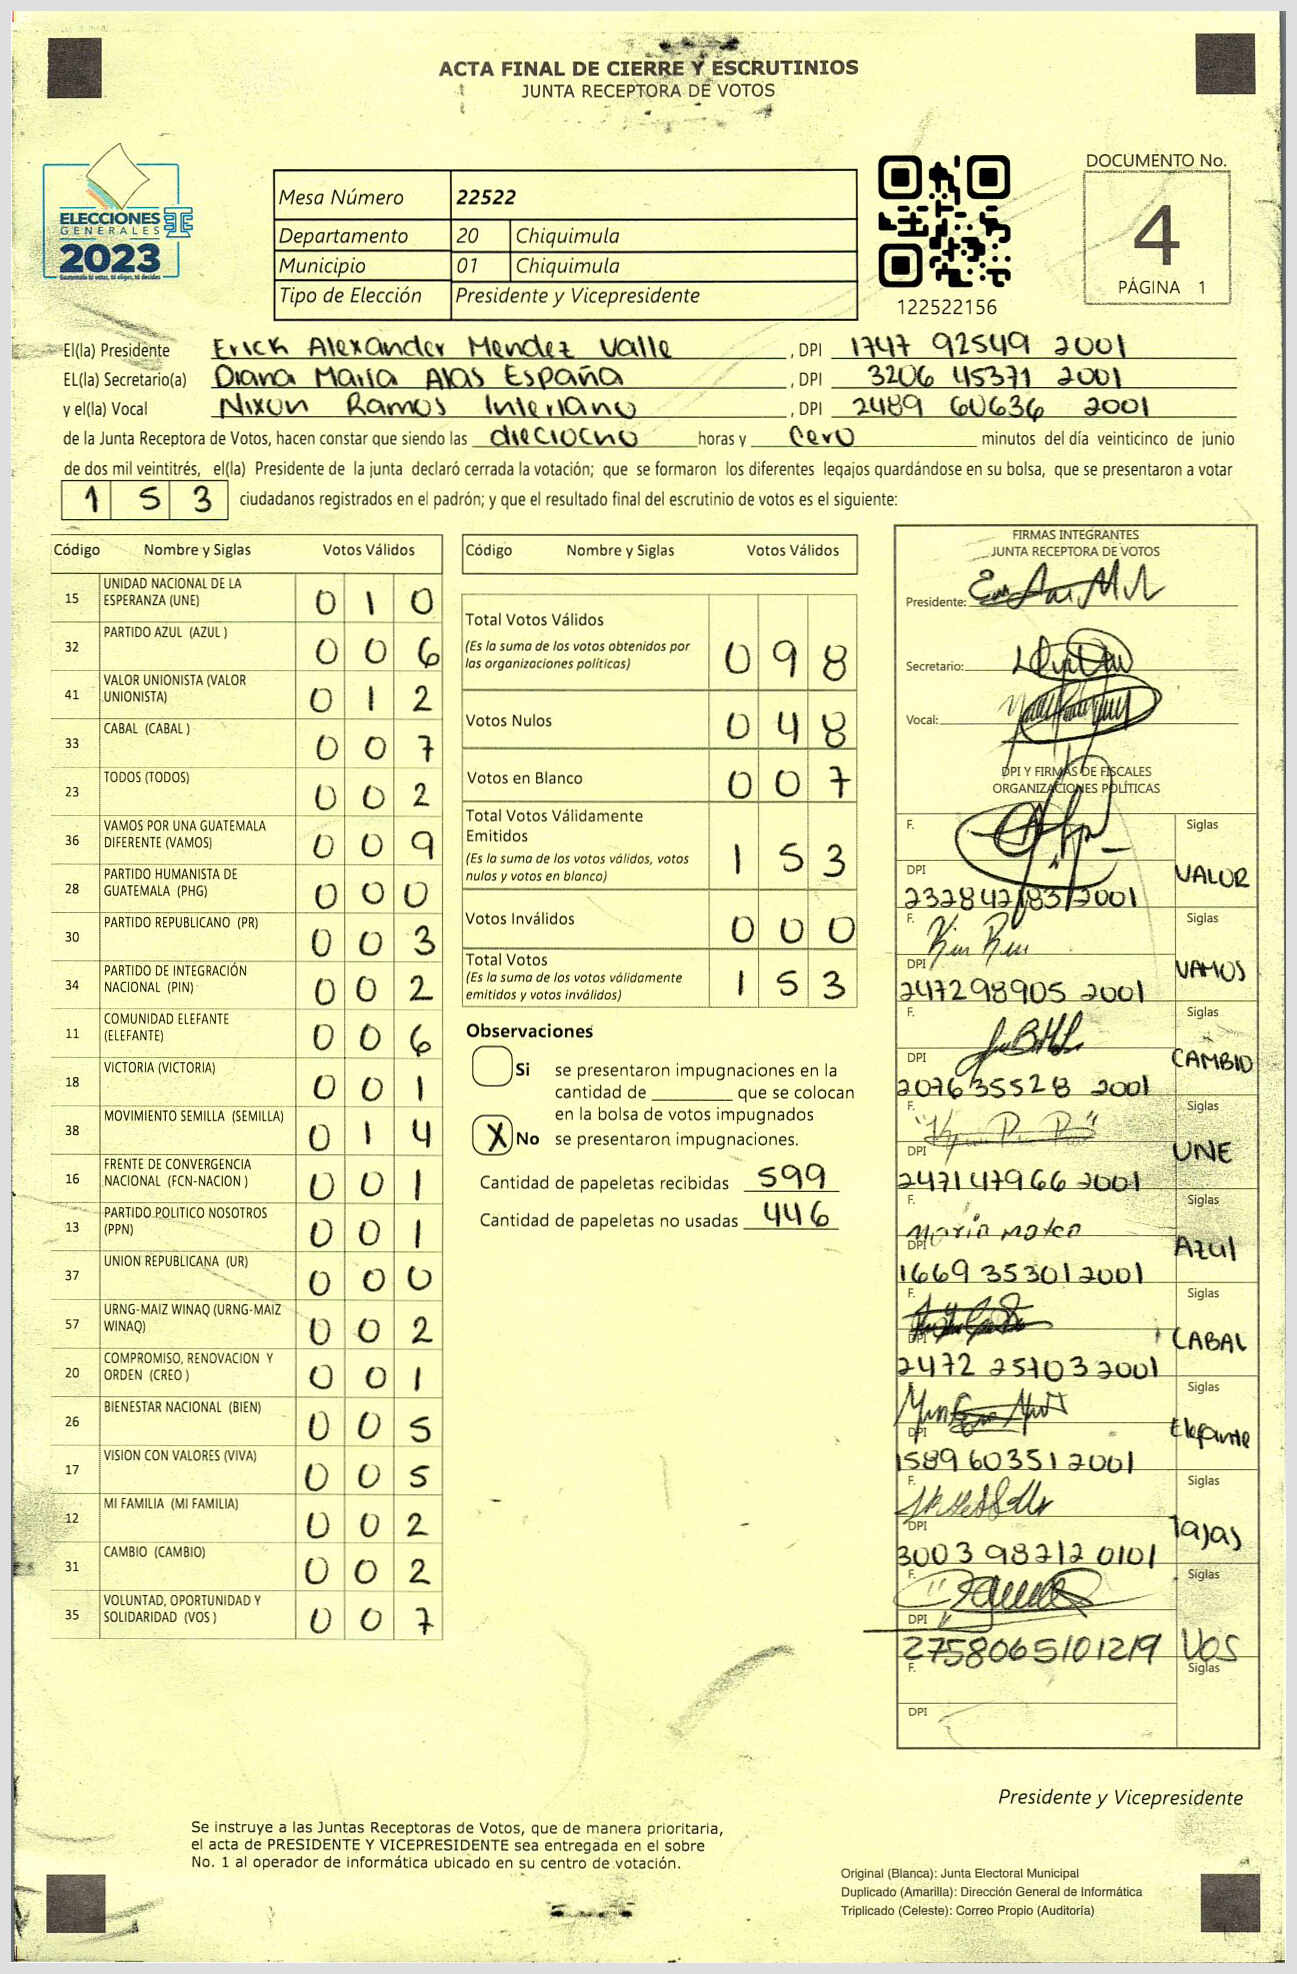 ACTA FINAL DE CIERRE Y ESCRUTINIOS
JUNTA RECEPTORA DE VOTOS
ELECCIONES
GENERALES
2023
Guatemala tú votas, tú eliges, tú decides
Mesa Número 22522
Departamento 20 Chiquimula
Municipio 01 Chiquimula
Tipo de Elección Presidente y Vicepresidente
122522156
DOCUMENTO No.
4
PÁGINA 1
El(la) Presidente Erick Alexander Mendez Valle , DPI 1747 92549 2001
EL(la) Secretario(a) Diana María Alas España , DPI 3206 45371 2001
y el(la) Vocal Nixon Ramos Interiano , DPI 2489 60636 2001
de la Junta Receptora de Votos, hacen constar que siendo las dieciocho horas y cero minutos del día veinticinco de junio
de dos mil veintitrés, el(la) Presidente de la junta declaró cerrada la votación; que se formaron los diferentes legajos guardándose en su bolsa, que se presentaron a votar
1 5 3 ciudadanos registrados en el padrón; y que el resultado final del escrutinio de votos es el siguiente:
Código Nombre y Siglas Votos Válidos
15 UNIDAD NACIONAL DE LA ESPERANZA (UNE) 0 1 0
32 PARTIDO AZUL (AZUL ) 0 0 6
41 VALOR UNIONISTA (VALOR UNIONISTA) 0 1 2
33 CABAL (CABAL ) 0 0 7
23 TODOS (TODOS) 0 0 2
36 VAMOS POR UNA GUATEMALA DIFERENTE (VAMOS) 0 0 9
28 PARTIDO HUMANISTA DE GUATEMALA (PHG) 0 0 0
30 PARTIDO REPUBLICANO (PR) 0 0 3
34 PARTIDO DE INTEGRACIÓN NACIONAL (PIN) 0 0 2
11 COMUNIDAD ELEFANTE (ELEFANTE) 0 0 6
18 VICTORIA (VICTORIA) 0 0 1
38 MOVIMIENTO SEMILLA (SEMILLA) 0 1 4
16 FRENTE DE CONVERGENCIA NACIONAL (FCN-NACION ) 0 0 1
13 PARTIDO POLITICO NOSOTROS (PPN) 0 0 1
37 UNION REPUBLICANA (UR) 0 0 0
57 URNG-MAIZ WINAQ (URNG-MAIZ WINAQ) 0 0 2
20 COMPROMISO, RENOVACION Y ORDEN (CREO ) 0 0 1
26 BIENESTAR NACIONAL (BIEN) 0 0 5
17 VISION CON VALORES (VIVA) 0 0 5
12 MI FAMILIA (MI FAMILIA) 0 0 2
31 CAMBIO (CAMBIO) 0 0 2
35 VOLUNTAD, OPORTUNIDAD Y SOLIDARIDAD (VOS ) 0 0 7
Código Nombre y Siglas Votos Válidos
Total Votos Válidos
(Es la suma de los votos obtenidos por las organizaciones políticas) 0 9 8
Votos Nulos 0 4 8
Votos en Blanco 0 0 7
Total Votos Válidamente Emitidos
(Es la suma de los votos válidos, votos nulos y votos en blanco) 1 5 3
Votos Inválidos 0 0 0
Total Votos
(Es la suma de los votos válidamente emitidos y votos inválidos) 1 5 3
Observaciones
Si se presentaron impugnaciones en la
cantidad de ________ que se colocan
en la bolsa de votos impugnados
X No se presentaron impugnaciones.
Cantidad de papeletas recibidas 599
Cantidad de papeletas no usadas 446
FIRMAS INTEGRANTES
JUNTA RECEPTORA DE VOTOS
Presidente:
Secretario:
Vocal:
DPI Y FIRMAS DE FISCALES
ORGANIZACIONES POLÍTICAS
F. Siglas
DPI VALOR
F. Siglas
DPI VAMOS
247298905 2001
F. Siglas
DPI CAMBIO
207635528 2001
F. Siglas
DPI UNE
247147966 2001
F. María Mateo Siglas
DPI Azul
1669 35301 2001
F. Siglas
DPI CABAL
2472 25703 2001
F. Siglas
DPI Elefante
1589 60351 2001
F. Siglas
DPI
3003 98212 0101
F. Siglas
DPI VOS
F. Siglas
DPI
Presidente y Vicepresidente
Se instruye a las Juntas Receptoras de Votos, que de manera prioritaria,
el acta de PRESIDENTE Y VICEPRESIDENTE sea entregada en el sobre
No. 1 al operador de informática ubicado en su centro de votación.
Original (Blanca): Junta Electoral Municipal
Duplicado (Amarilla): Dirección General de Informática
Triplicado (Celeste): Correo Propio (Auditoría)